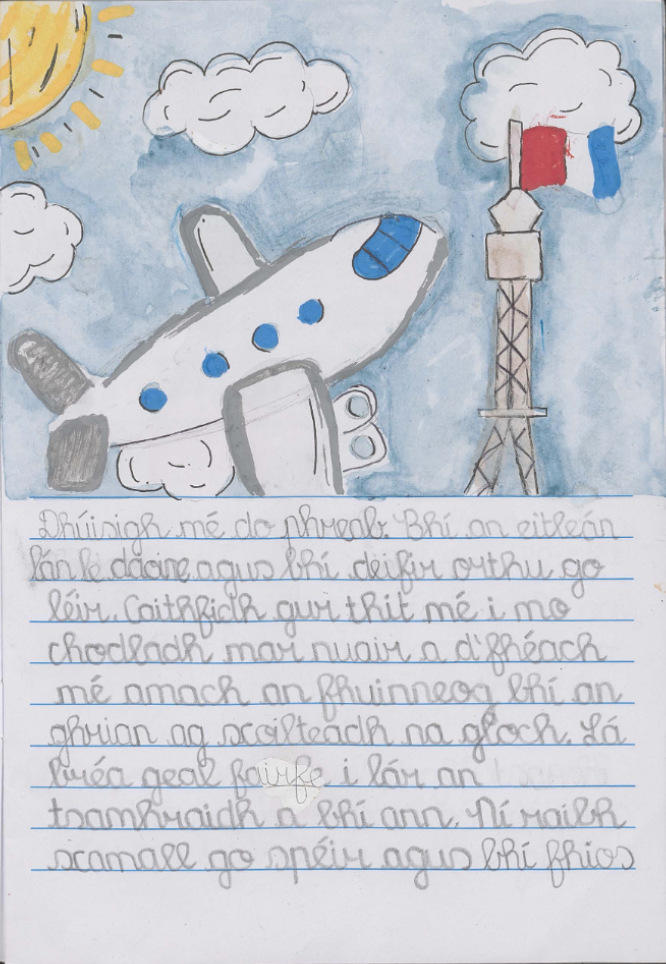 Dhúisigh mé do phreab. Bhí an eitleán
lán le daoine agus bhí deifir orthu go
léir. Caithfidh gur thit mé i mo
chodladh mar nuair a d'fhéach
mé amach an fhuinneog bhí an
ghrian ag scoilteadh na gcloch. Lá
bréa geal fairfe i lár an
tsamhraidh a bhí ann. Ní raibh
scamall go spéir agus bhí fhios